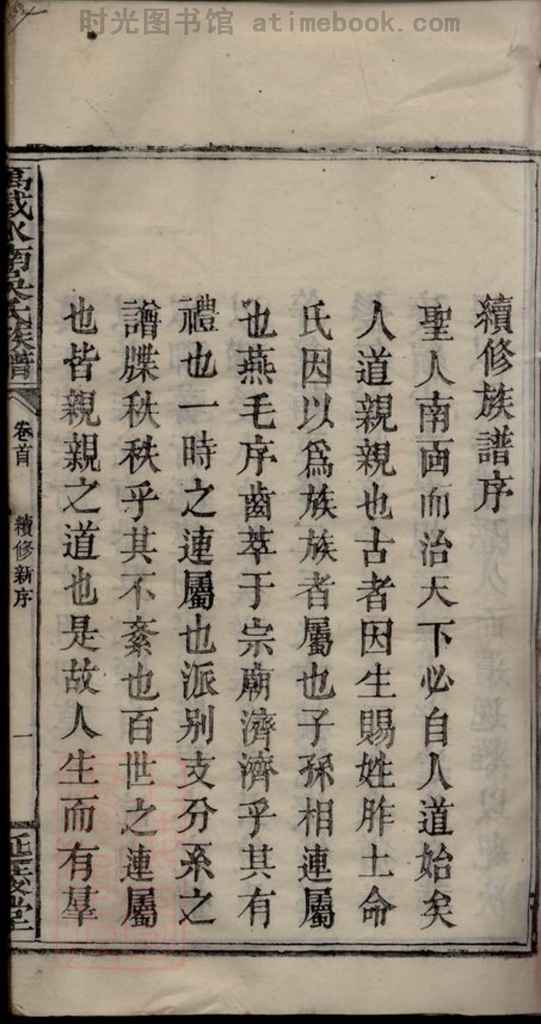 时光图书馆 - atimebook.com
續修族譜序
聖人南面而治天下必自人道始矣
人道親親也古者因生賜姓胙土命
氏因以爲族族者屬也子孫相連屬
也燕毛序齒萃于宗廟濟濟乎其有
禮也一時之連屬也派别支分系之
譜牒秩秩乎其不紊也百世之連屬
也皆親親之道也是故人生而有羣
萬載水南吳氏族譜
卷首
續修新序
一
延陵堂